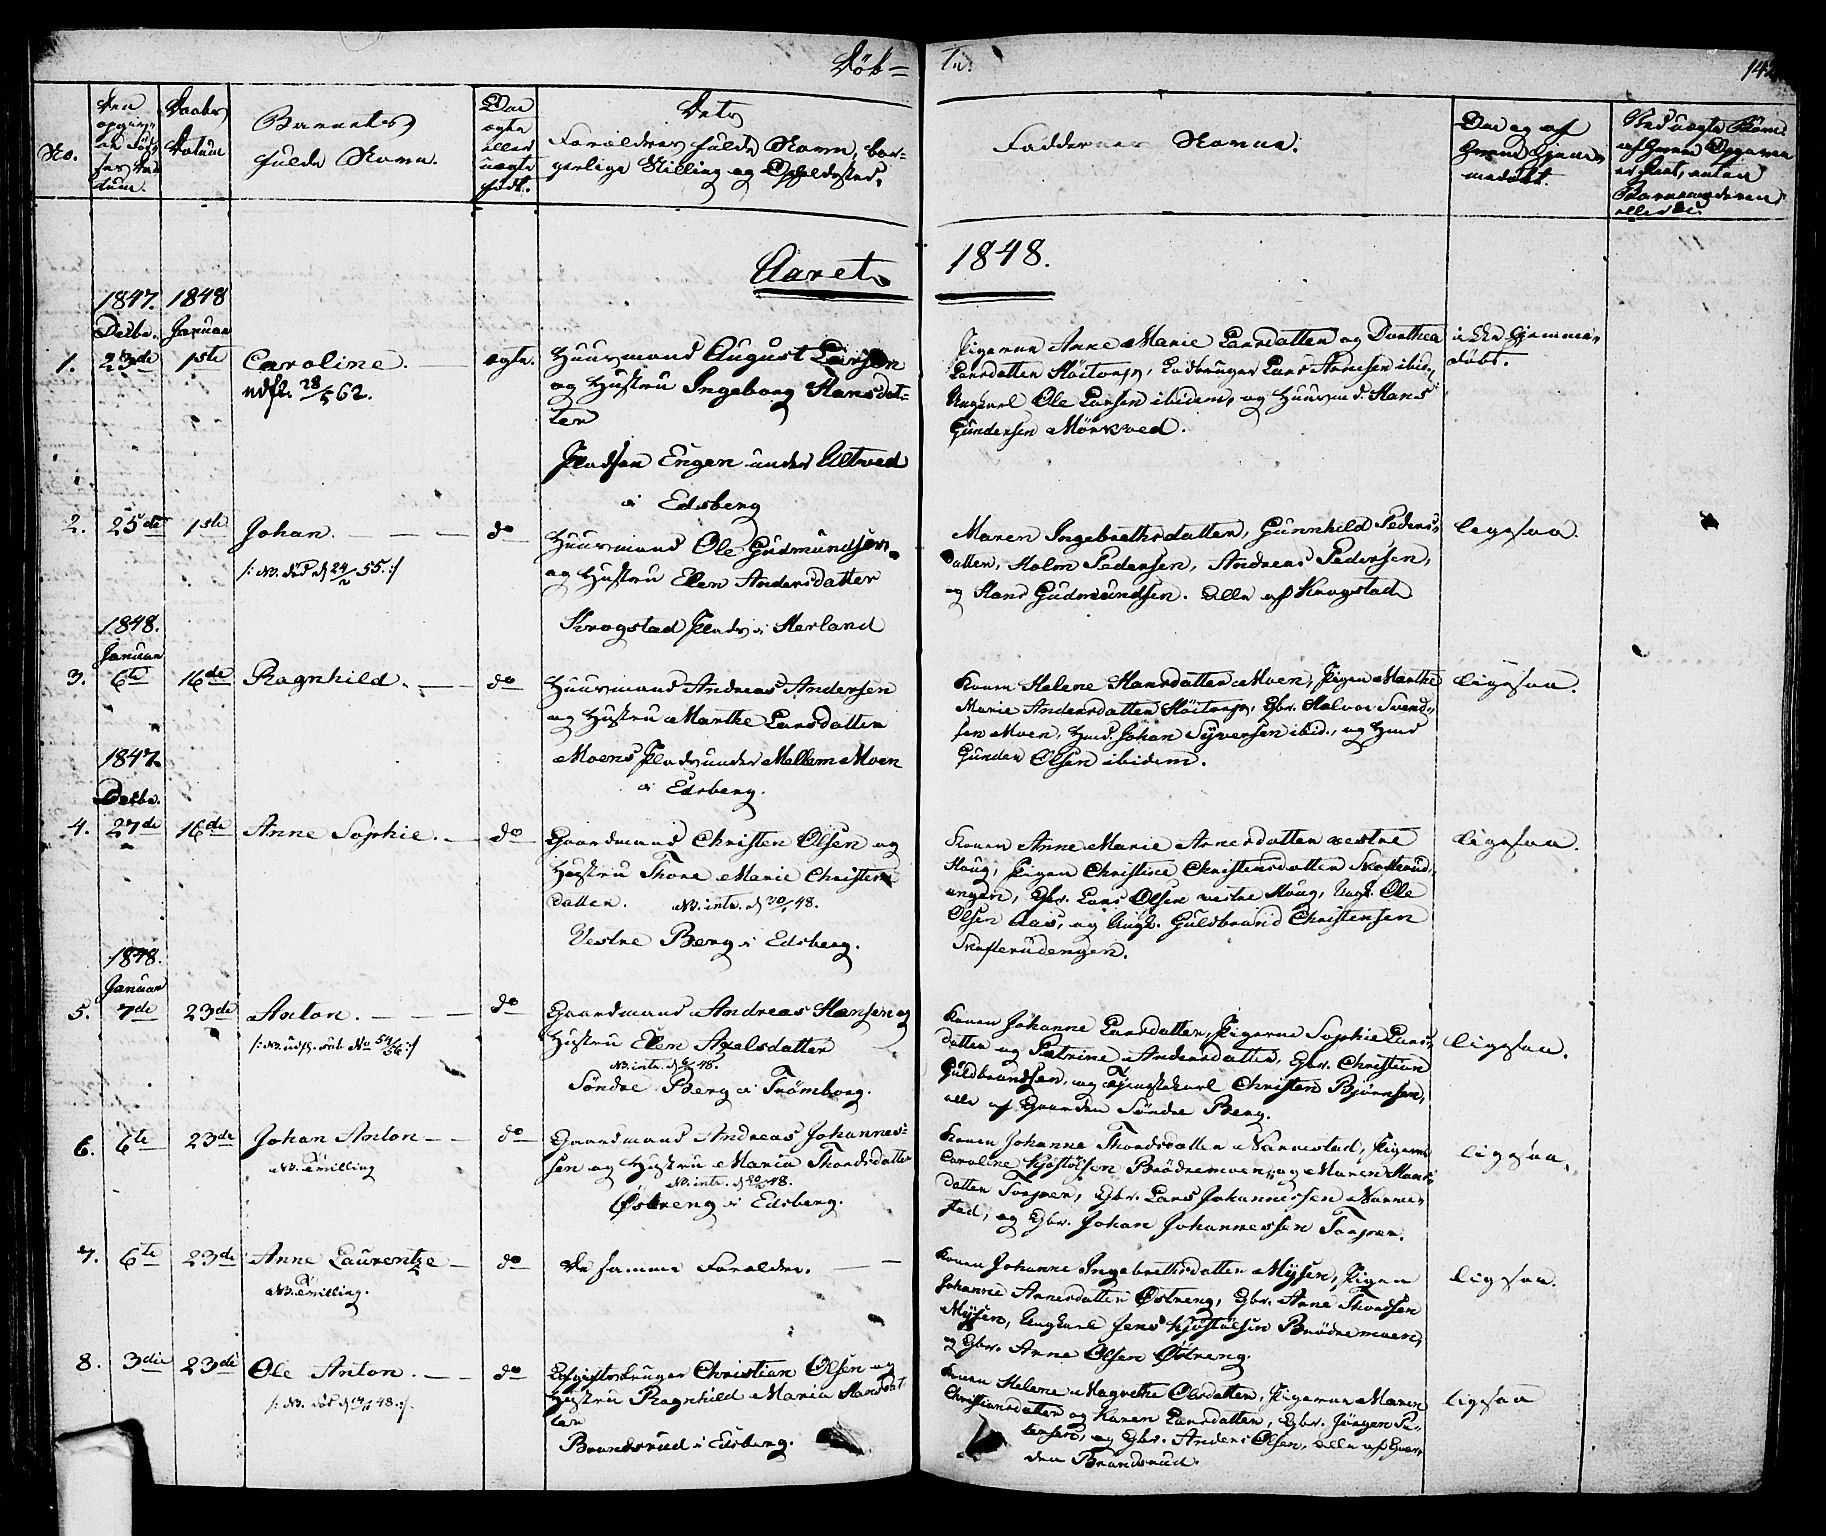 Døb=
te.
No.
Den
opgivne
Fød-
sels Da-
tum.
Daabs
Datum
Barnets
fulde Navn.
Om
ægte
eller
uægte
født.
Dets
Forældres fulde Navn, bor-
gerlige Stilling og Opholdssted.
Faddernes Navne.
Om og af
hvem hjem-
medøbt.
Aaret
1848.
1847. 1848
Decbr. Januar
1. 23de 1ste Caroline. ægte. Huusmand August Larsen
udfl. 28/5 62. og Hustru Ingeborg Hansdat-
ter
Pladsen Engen under Ultved
i Edsberg
Pigerne Anne Marie Larsdatter og Dorthea
Larsdatter Høitorp, Ladbruger Lars Arnesen ibid.,
Ungkarl Ole Larsen ibidem, og Huusmd. Hans
Gundersen Mørkved.
ikke hjemme-
døbt.
2. 25de 1ste Johan. do Huusmand Ole Gudmundsen
/: NB. død d 24/2 55. :/ og Hustru Elen Andersdatter
Krogstad Plads i Herland
Maren Ingebrethsdatter, Gunnhild Peders-
datter, Holm Pedersen, Andreas Pedersen,
og Hans Gudmundsen. Alle af Krogstad
ligesaa.
1848.
Januar
3. 6te 16de Ragnhild. do Huusmand Andreas Andersen
og Hustru Marthe Larsdatter
Moens Plads under Mellem Moen
i Edsberg.
Konen Helene Hansdatter Moen, Pigen Marthe
Marie Andersdatter Høitorp, Gbr. Halvor Svend-
sen Moen, Hmd. Johan Syversen ibid., og Hmd
Gunder Olsen ibidem.
ligesaa.
1847.
Decbr.
4. 27de 16de Anne Sophie. do Gaardmand Christen Olsen og
Hustru Thore Marie Christens
datter. NB. intr. d 30/1 48.
Vestre Berg i Edsberg.
Konen Anne Marie Arnesdatter vestre
Houg, Pigen Christine Christensdatter Skofterud-
engen, Gbr. Lars Olsen vestre Houg, Ungk. Ole
Olsen Aas, og Ungk. Guldbrand Christensen
Skofterudengen.
ligesaa.
1848.
Januar
5. 7de 23de Anton. do Gaardmand Andreas Hansen og
Hustru Elen Axelsdatter
NB. intr. d 6/2 48.
Søndre Berg i Trømborg.
Konen Johanne Larsdatter, Pigerne Sophie Lars-
datter og Petrine Andersdatter, Gbr. Christian
Guldbrandsen, og Tjenestekarl Christen Bjørnsen,
alle af Gaarden Søndre Berg.
ligesaa.
6. 6te 23de Johan Anton do Gaardmand Andreas Johannes-
NB. Tvilling sen og Hustru Maria Thordsdatter
NB. intr. d 20/2 48.
Østreng i Edsberg.
Konen Johanne Thordsdatter Narvestad, Pigerne
Caroline Kjøstølsen Brødremoen, og Maren Hans-
datter Torper, Gbr. Lars Johannessen Narve-
stad, og Gbr. Johan Johannessen Torper.
ligesaa.
7. 6te 23de Anne Laurentze do De samme Forældre.
NB. Tvilling.
Konen Johanne Ingebrethsdatter Mysen, Pigen
Johanne Arnesdatter Østreng, Gbr. Arne Thordsen
Mysen, Ungkarl Jens Kjøstølsen Brødremoen,
og Gbr. Arne Olsen Østreng.
ligesaa.
8. 3die 23de Ole Anton. do Christian Olsen og
Hustru Ragnhild Maria Hansdat
ter
Brandsrud i Edsberg.
Konen Helene Magrethe Olsdatter, Pigerne Maren
Christiansdatter og Karen Larsdatter, Gbr. Jørgen Pe-
tersen, og Gbr. Anders Olsen, alle af Gaar-
den Brandsrud.
ligesaa